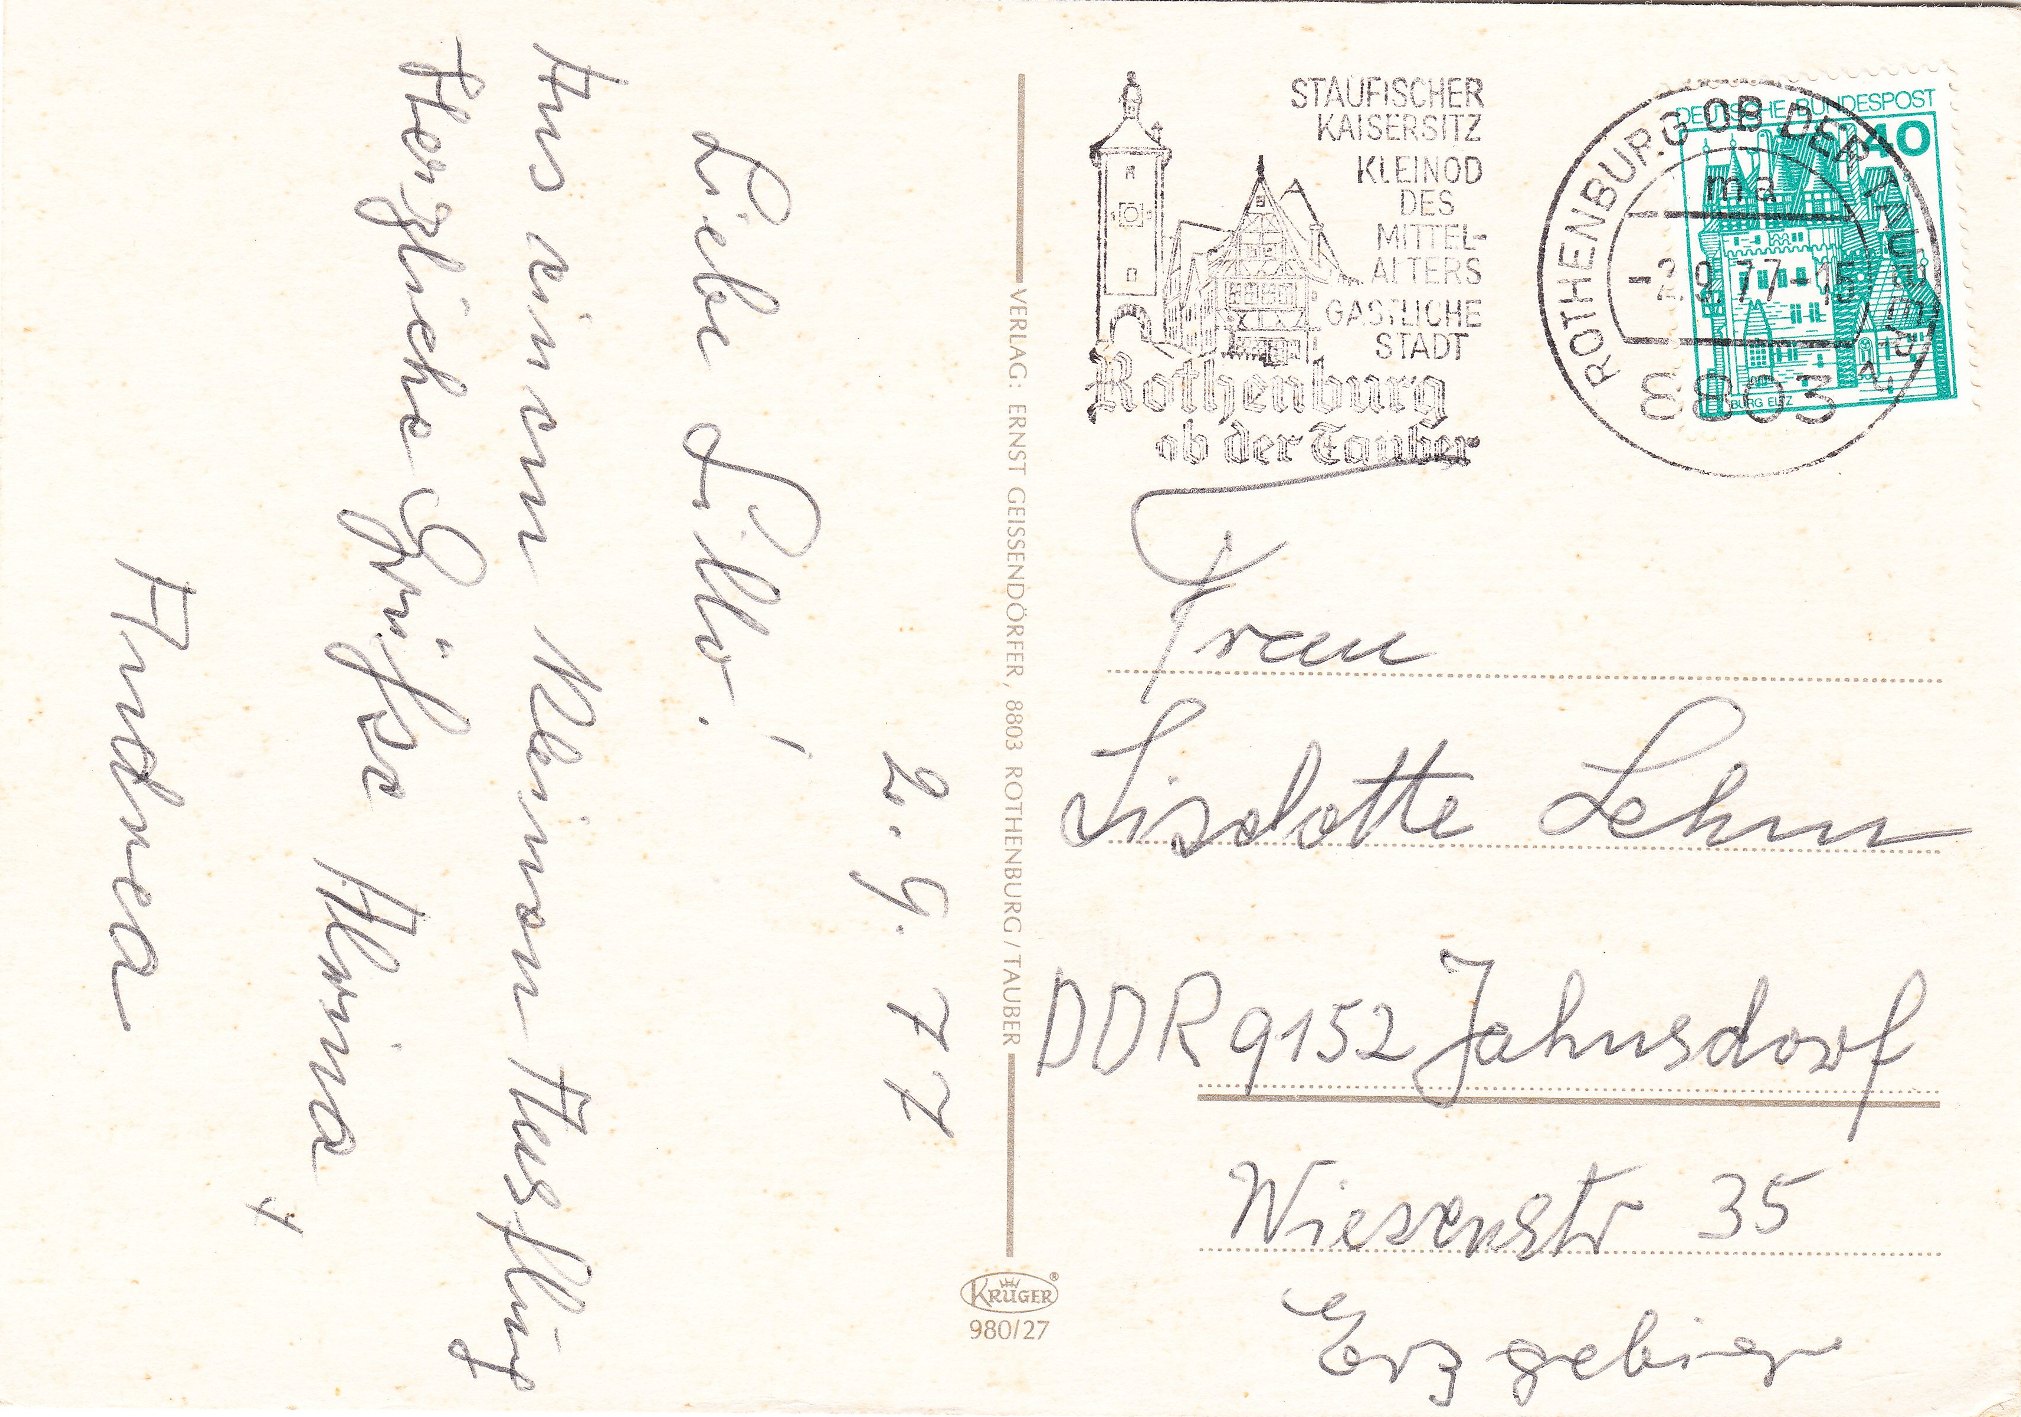 2. 9. 77
Liebe Lillo!
Aus einem kleinen Ausflug
Herzliche Grüße Alwina
Andrea
VERLAG: ERNST GEISSENDÖRFER, 8803 ROTHENBURG / TAUBER
KRÜGER ®
980/27
STAUFISCHER
KAISERSITZ
KLEINOD
DES
MITTEL-
ALTERS
GASTLICHE
STADT
Rothenburg
ob der Tauber
ROTHENBURG OB DER TAUBER 2
ma
-2.9.77-15
8803
DEUTSCHE BUNDESPOST
40
BURG ELTZ
Frau
Liselotte Lehm
DDR 9152 Jahnsdorf
Wiesenstr 35
Erzgebirge